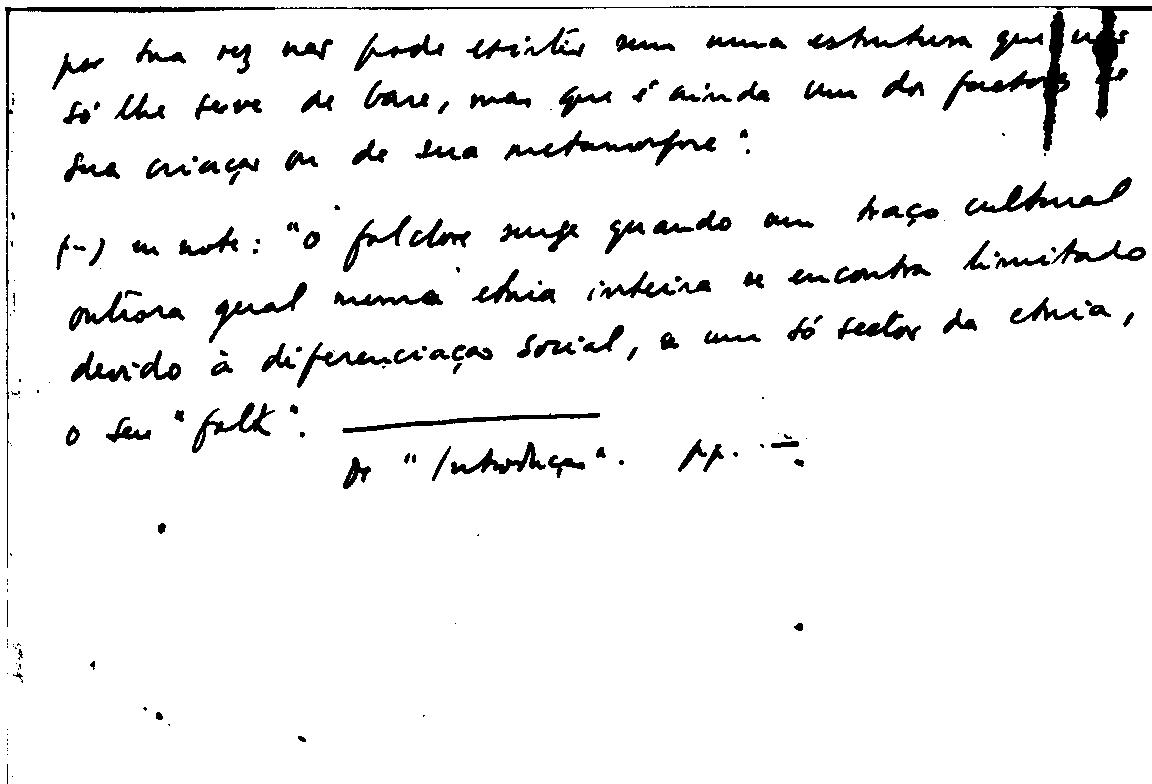 por sua vez não pode existir sem uma estrutura que não
só lhe serve de base, mas que é ainda um dos factores de
sua criação ou de sua metamorfose".
(...) em nota: "O folclore surge quando um traço cultural
outrora geral numa etnia inteira se encontra limitado
devido à diferenciação social, a um só sector da etnia,
o seu "folk".
Da "Introdução". pp.